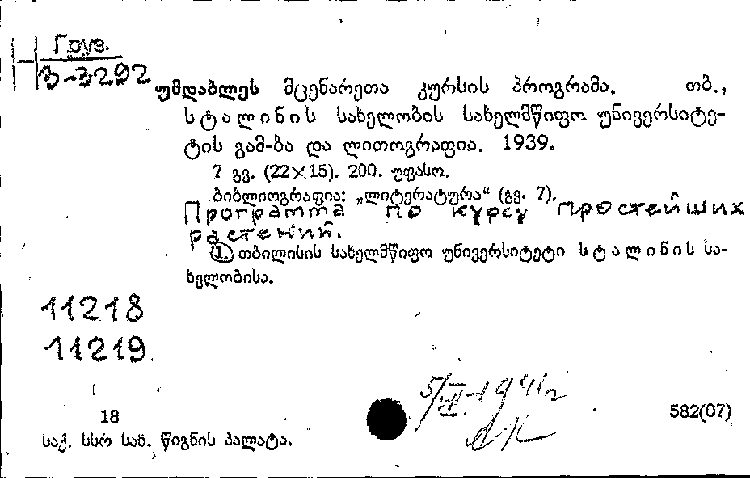 Груз.
3-3292
უმდაბლეს მცენარეთა კურსის პროგრამა. თბ.,
სტალინის სახელობის სახელმწიფო უნივერსიტე-
ტის გამ-ბა და ლითოგრაფია. 1939.
7 გვ. (22×15). 200. უფასო.
ბიბლიოგრაფია: „ლიტერატურა“ (გვ. 7).
Программа по курсу простейших
растений.
1. თბილისის სახელმწიფო უნივერსიტეტი სტალინის სა-
ხელობისა.
11218
11219.
18
582(07)
საქ. სსრ სახ. წიგნის პალატა.